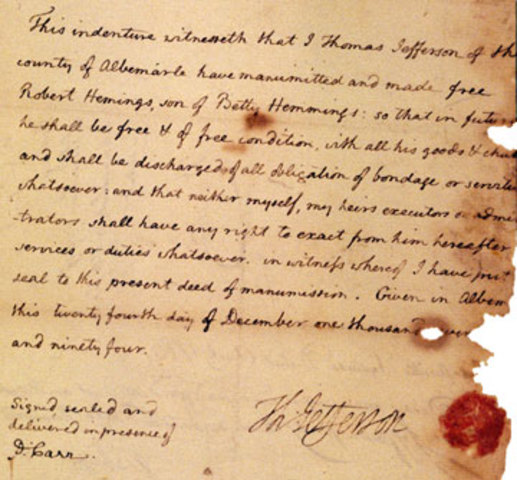 This indenture witnesseth that I Thomas Jefferson of th
county of Albemarle have manumitted and made free
Robert Hemings, son of Betty Hemmings: so that in future
he shall be free & of free condition, with all his goods & chat
and shall be discharged of all obligation of bondage or servitu
whatsoever: and that neither myself, my heirs executors or admini
trators shall have any right to exact from him hereafter
services or duties whatsoever. in witness whereof I have put
seal to this present deed of manumission. Given in Albem
this twenty fourth day of December one thousand even
and ninety four.
Signed, sealed and
delivered in presence of
D. Carr.
Th. Jefferson